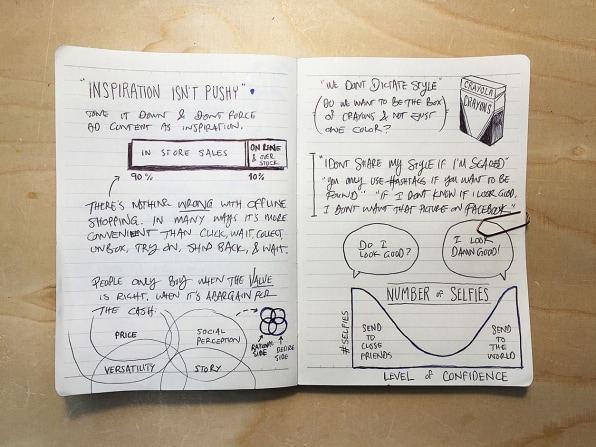 "INSPIRATION ISN'T PUSHY"
TONE IT DOWN & DON'T FORCE
AD CONTENT AS INSPIRATION.
IN STORE SALES
ONLINE
& OVER
STOCK
90%
10%
THERE'S NOTHING WRONG WITH OFFLINE
SHOPPING. IN MANY WAYS IT'S MORE
CONVENIENT THAN CLICK, WAIT, COLLECT
UNBOX, TRY ON, SHIP BACK, & WAIT.
PEOPLE ONLY BUY WHEN THE VALUE
IS RIGHT. WHEN IT'S A BARGAIN PER
THE CASH:
PRICE
SOCIAL
PERCEPTION
VERSATILITY
STORY
RATIONAL
SIDE
DESIRE
SIDE
"WE DON'T DICTATE STYLE"
DO WE WANT TO BE THE BOX
OF CRAYONS & NOT JUST
ONE COLOR?
CRAYOLA
CRAYONS
"I DONT SHARE MY STYLE IF I'M SCARED"
"YOU ONLY USE HASHTAGS IF YOU WANT TO BE
FOUND" "IF I DON'T KNOW IF I LOOK GOOD,
I DON'T WANT THAT PICTURE ON FACEBOOK."
DO I
LOOK GOOD?
I LOOK
DAMN GOOD!
NUMBER of SELFIES
#SELFIES
SEND
TO
CLOSE
FRIENDS
SEND
TO
THE
WORLD
LEVEL of CONFIDENCE